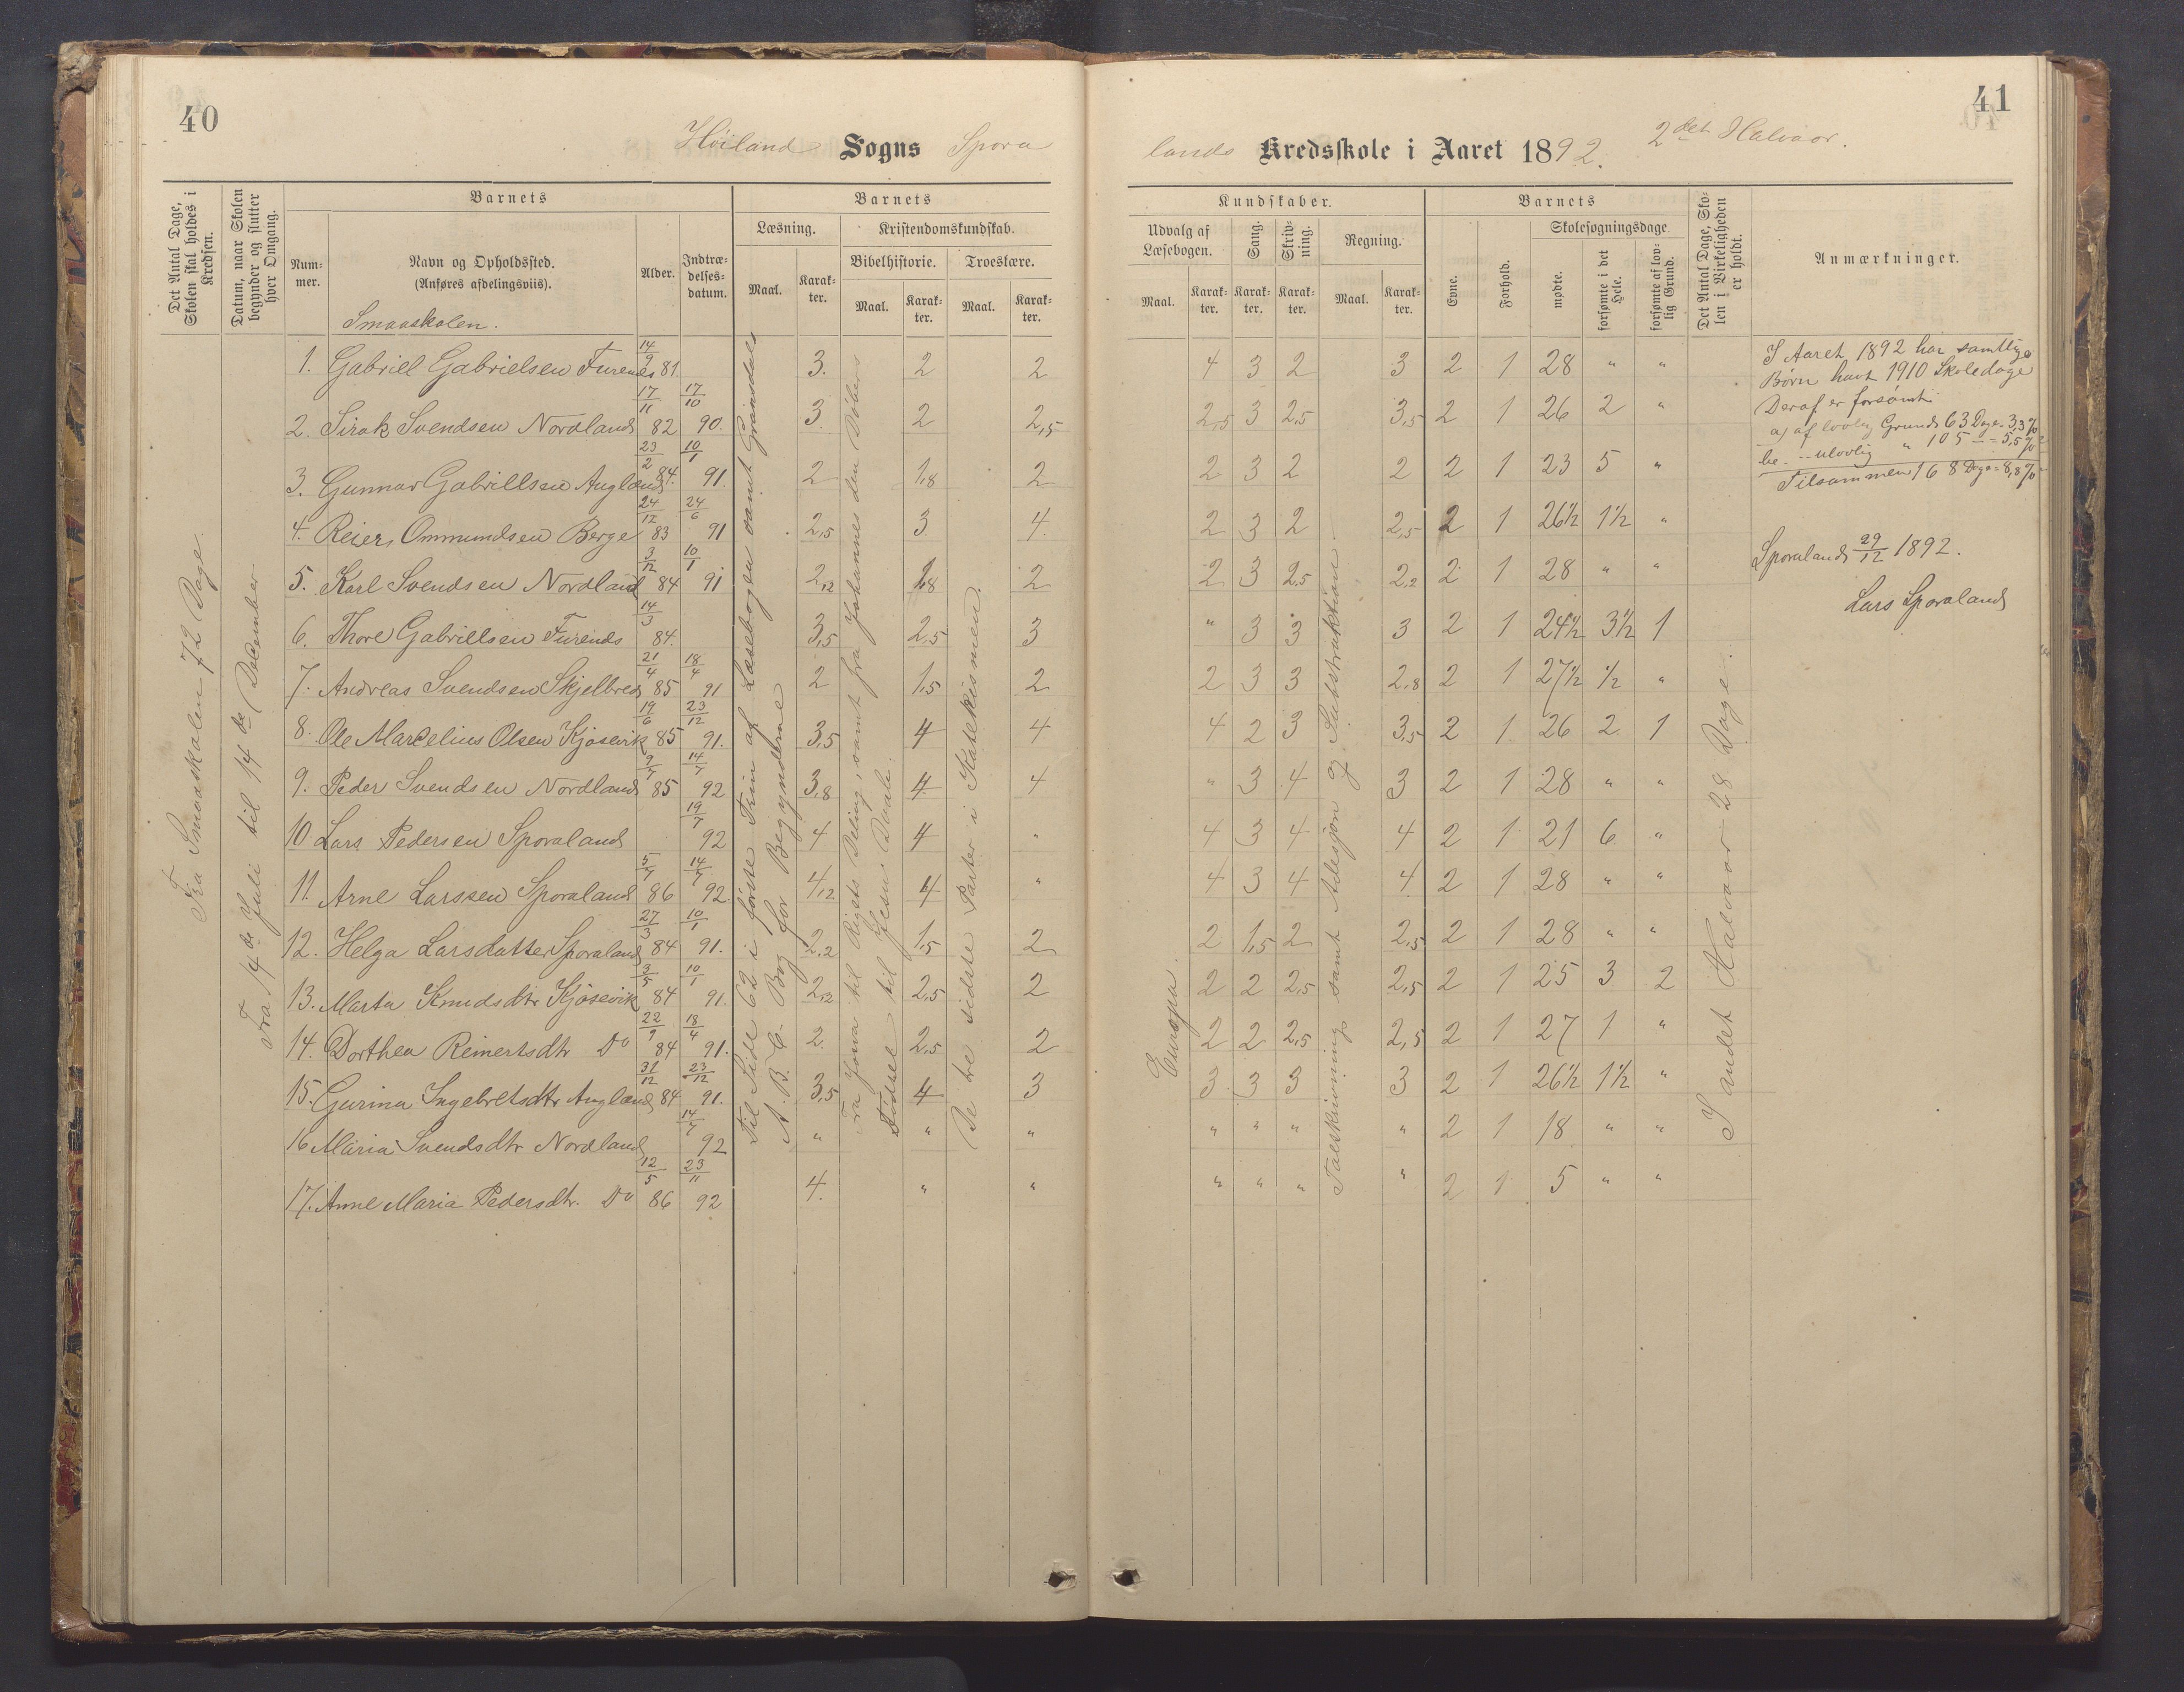 40
Höiland Sogns Spora
Det Antal Dage, Skolen skal holdes i Kredsen.
Datum, naar Skolen begynder og slutter hver Omgang.
Barnets
Barnets
Læsning.
Kristendomskundskab.
Num-mer.
Navn og Opholdssted.
(Anføres afdelingsviis).
Alder.
Indtræ-delses-datum.
Maal.
Karak-ter.
Bibelhistorie.
Troeslære.
Maal.
Karak-ter.
Maal.
Karak-ter.
Smaaskolen.
Fra Smaaskolen 72 Dage.
Fra 14de Juli til 14de December
Til Side 62 i første Trin af Læsebogen samt Grønsdals
A. B. C. Bog for Begynderne
Fra Josva til Rigets Deling, samt fra Johannes den Døbers
Fødsel til Jesu Daab.
De tre sidste Parter i Katekismen.
1. Gabriel Gabrielsen Furenes 14/9 81 3. 2 2
2. Sirak Svendsen Nordland 17/11 82 17/10 90. 3 2 2,5
3. Gunnar Gabrillsen Augland 23/2 84. 10/1 91. 2 1,8 2
4. Reiers Ommundsen Berge 24/12 83 24/6 91 2,5 3 4.
5. Karl Svendsen Nordland 3/12 84 10/1 91 2,2 1,8 2
6. Thore Gabrillsen Furends 14/3 84. 3,5 2,5 3
7. Andreas Svendsen Skjelbred 21/4 85 18/4 91 2 1,5 2
8. Ole Marcelius Olsen Kjosevik 19/6 85 23/12 91. 3,5 4 4
9. Peder Svendsen Nordland 9/7 85 14/7 92 3,8 4 4
10 Lars Pedersen Sporaland 19/7 92 4 4 "
11. Arne Larssen Sporaland 5/7 86 14/7 92. 4,2 4 "
12. Helga Larsdatter Sporaland 27/3 84 10/1 91. 2,2 1,5 2
13. Marta Knudsdtr Kjösevik 3/5 84 10/1 91. 2,2 2,5 2
14. Dorthea Reinertsdtr Do 22/9 84 18/4 91. 2. 2,5 2
15. Gurina Ingebretsdtr Augland 31/12 84 23/12 91. 3,5 4 3
16 Maria Svendsdtr Nordland 14/7 92 " " "
17. Anne Maria Pedersdtr. Do 12/5 86 23/11 92 4. " "
41
lands Kredsskole i Aaret 1892. 2det Halvaar.
Kundskaber.
Barnets
Udvalg af Læsebogen.
Sang.
Skriv-ning.
Regning.
Evne.
Forhold.
Skolesøgningsdage.
Det Antal Dage, Sko-len i Virkeligheden er holdt.
Anmærkninger.
Maal.
Karak-ter.
Karak-ter.
Karak-ter.
Maal.
Karak-ter.
mødte.
forsømte i det Hele.
forsømte af lov-lig Grund.
Europa.
Talskrivning samt Adesjon og Subtraktion.
I andet Halvaar 28 Dage.
4 3 2 3 2 1 28 " "
2,5 3 2,5 3,5 2 1 26 2 "
2 3 2 2 2 1 23 5 "
2 3 2 2,5 2 1 26½ 1½ "
2 3 2,5 2,2 2 1 28 " "
" 3 3 3 2 1 24½ 3½ 1
2 3 3 2,8 2 1 27½ ½ "
4 2 3 3,5 2 1 26 2 1
" 3 4 3 2 1 28 " "
4 3 4 4 2 1 21 6 "
4 3 4 4 2 1 28 " "
2 1,5 2 2,5 2 1 28 " "
2 2 2,5 2,5 2 1 25 3 2
2 2 2,5 2,5 2 1 27 1 "
3 3 3 3 2 1 26½ 1½ "
" " " " 2 1 18 " "
" " " " 2 1 5 " "
I Aaret 1892 har samtlige
Børn havt 1910 Skoledage
Deraf er forsømt
a) af lovlig Grund 63 Dage = 3,3%
be. - ulovlig " 105 - = 5,5%
Tilsammen 168 Dage = 8,8%
Sporaland 29/12 1892.
Lars Sporaland